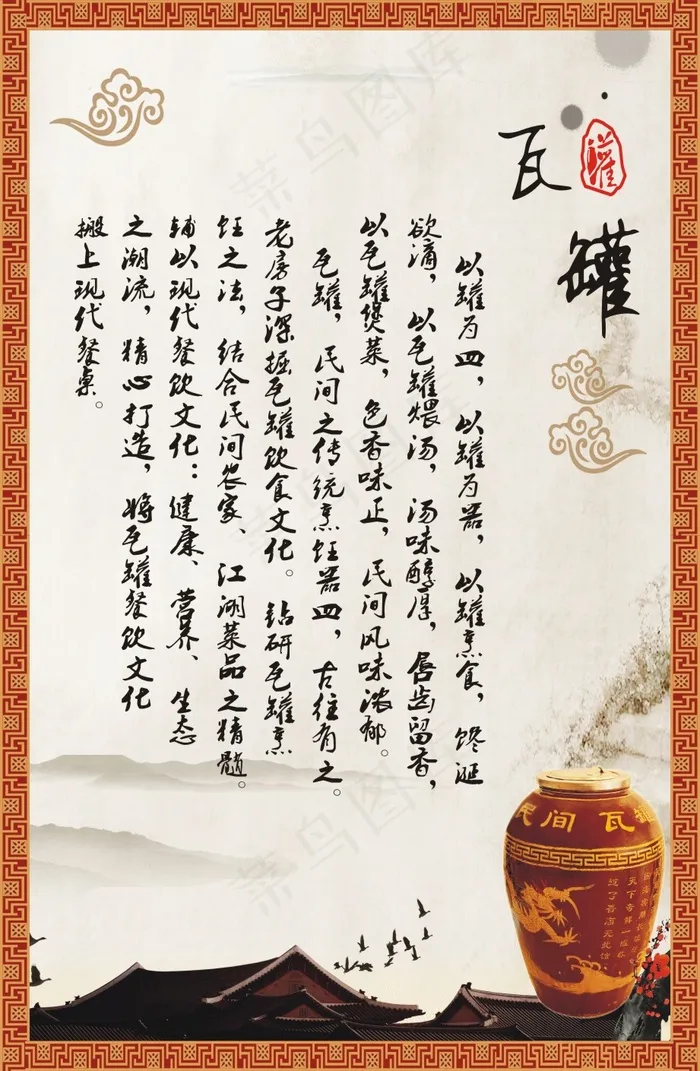 瓦罐
罐
以罐为皿，以罐为器，以罐烹食，馋涎
欲滴，以瓦罐煨汤，汤味醇厚，唇齿留香，
以瓦罐煲菜，色香味正，民间风味浓郁。
瓦罐，民间之传统烹饪器皿，古往有之。
老房子深掘瓦罐饮食文化。钻研瓦罐烹
饪之法，结合民间农家、江湖菜品之精髓。
辅以现代餐饮文化：健康、营养、生态
之潮流，精心打造，将瓦罐餐饮文化
搬上现代餐桌。
民间瓦罐
菜鸟图库